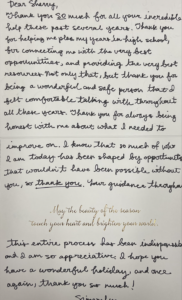 Dear Sherry,
Thank you so much for all your incredible
help these past several years. Thank you
for helping me plan my years in high school,
for connecting me with the very best
opportunities, and providing the very best
resources. Not only that, but thank you for
being a wonderful and safe person that I
felt comfortable talking with throughout
all these years. Thank you for always being
honest with me about what I needed to
improve on. I know that so much of who
I am today has been shaped by opportunities
that wouldn't have been possible without
you, so thank you. Your guidance throughout
May the beauty of the season
touch your heart and brighten your world.
this entire process has been indispensable
and I am so appreciative. I hope you
have a wonderful holiday, and once
again, thank you so much!
Sincerely